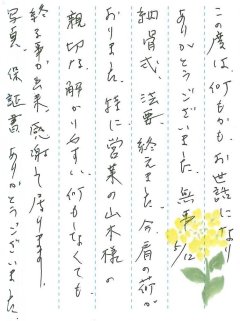 この度は何もかもお世話になり
ありがとうございました。無事 5/12
納骨式、法要、終えました。今肩の荷が
おりました。特に営業の山木様の
親切な解かりやすい何もしなくても
終る事が出来、感謝して居ります。
写真、保証書、ありがとうございました。